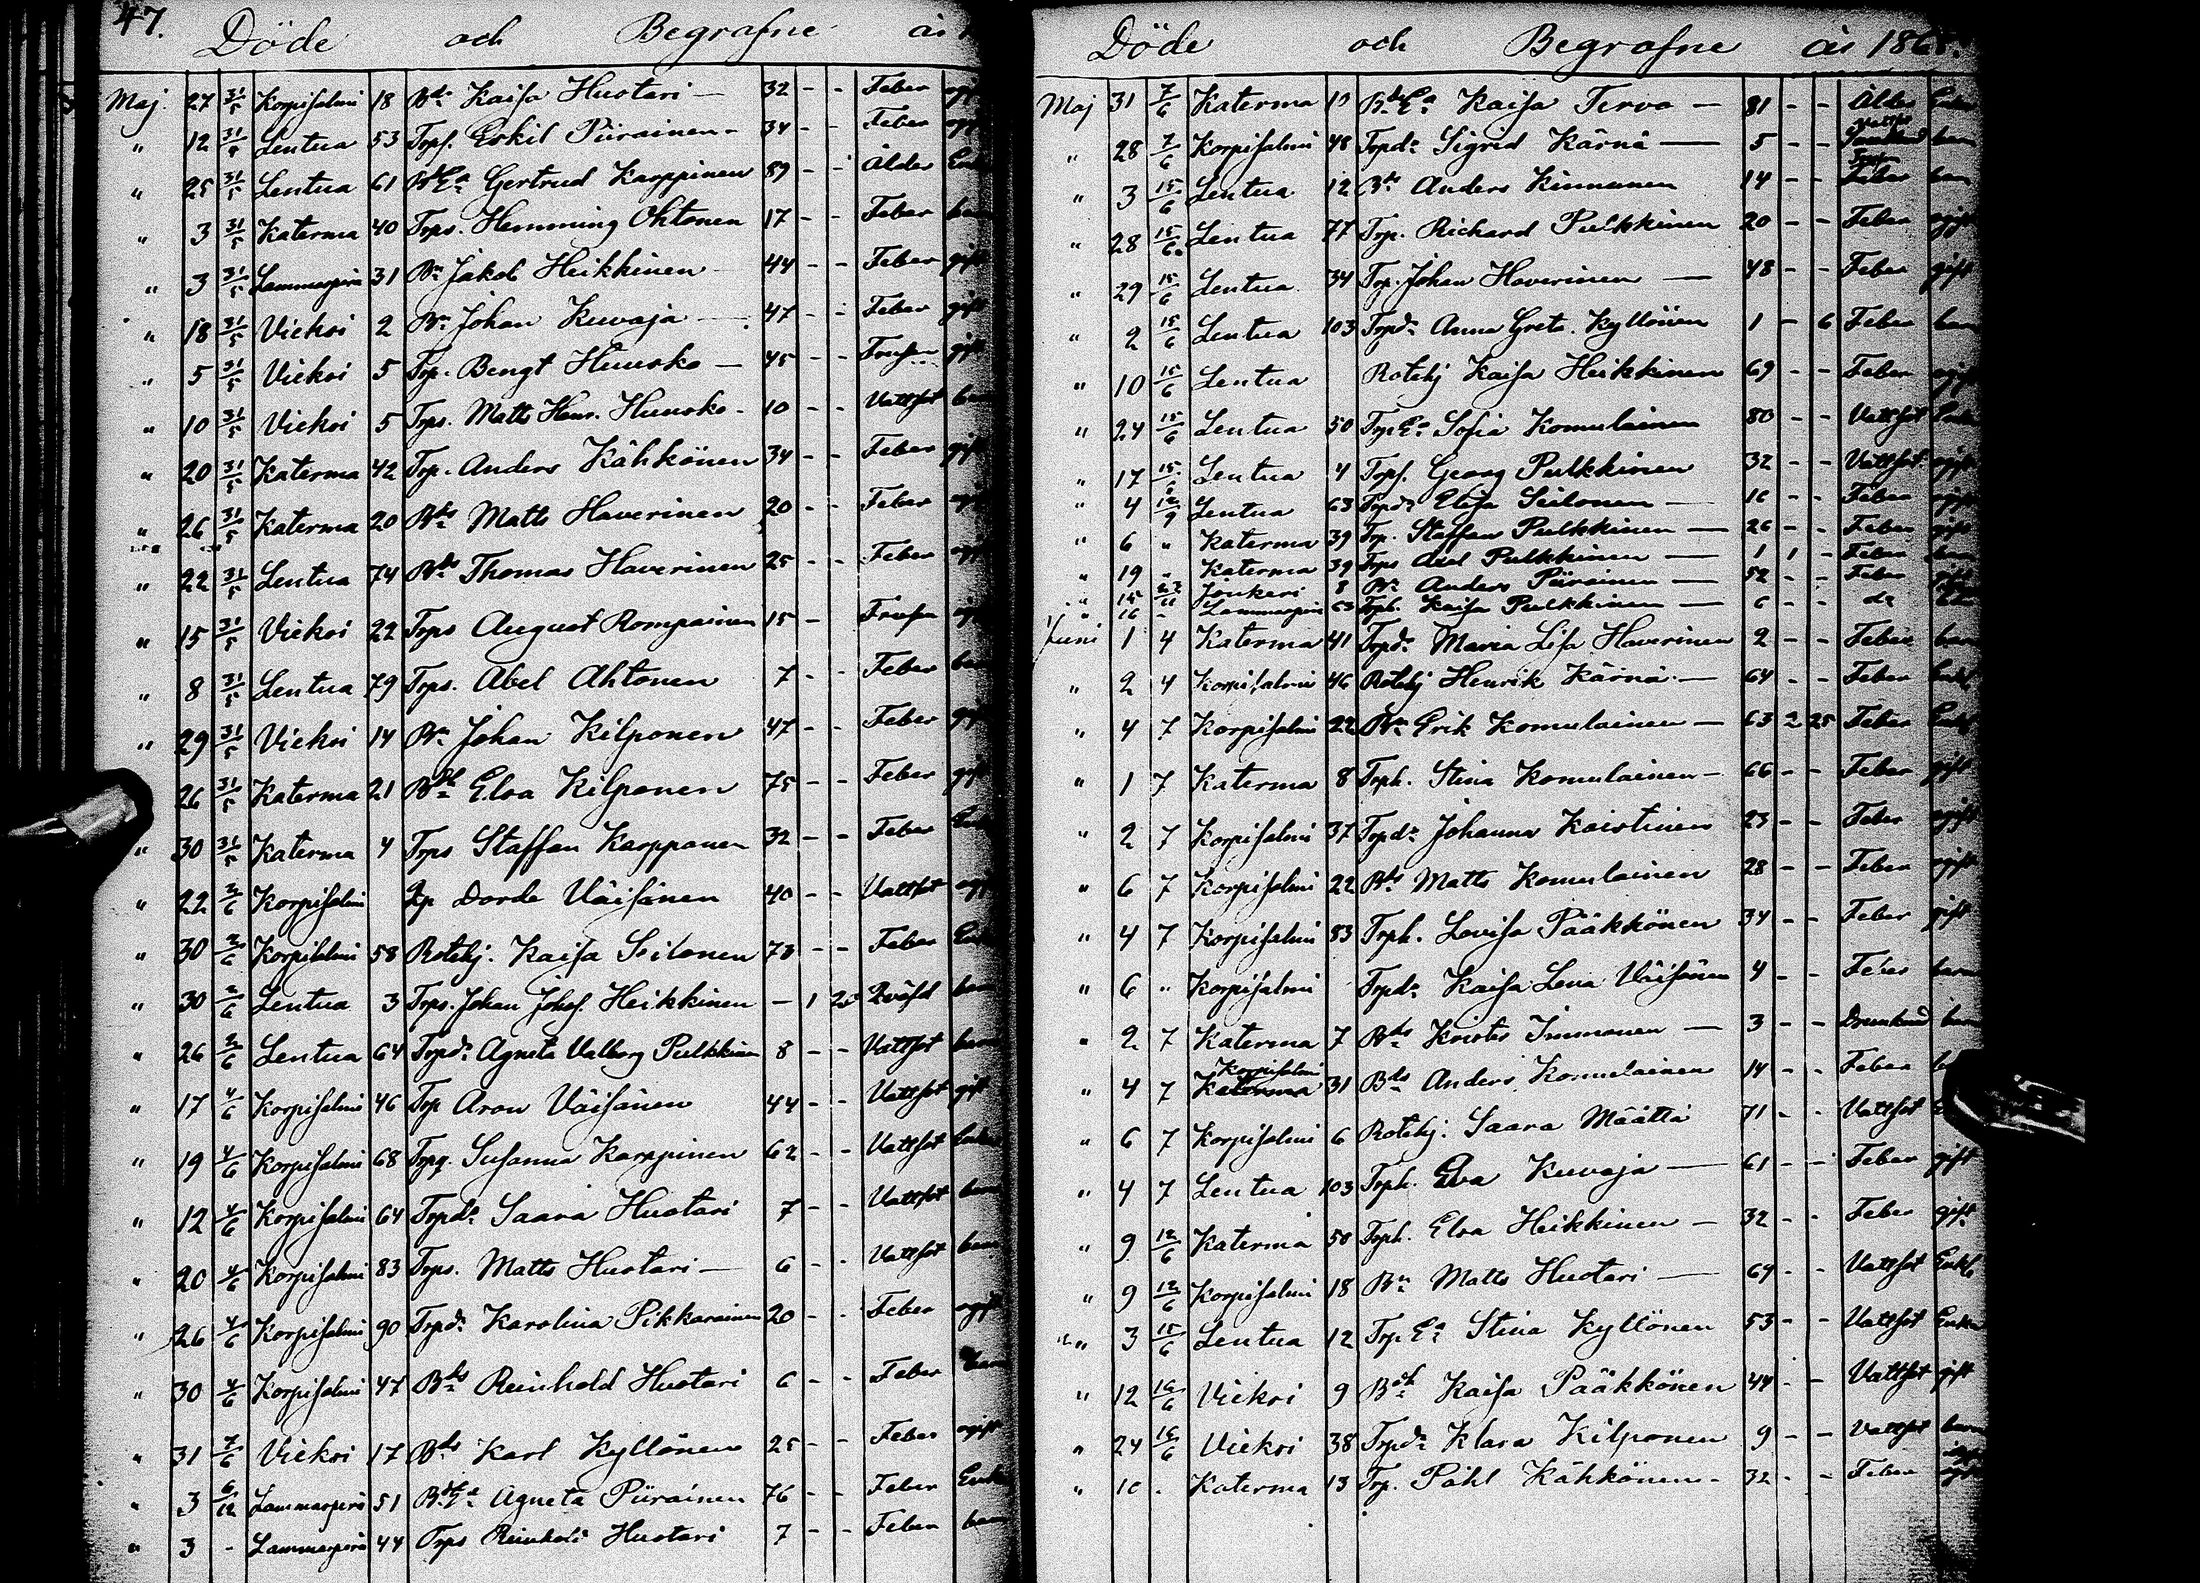 47.
Döde och Begrafne år
Maj 27 31/5 Korpisalmi 18 Bdr Kaisa Huotari — 32 - - Feber ogift
" 12 31/5 Lentua 53 Trps. Eskil Piirainen - 34 - - Feber
" 25 31/5 Lentua 61 Gertrud Karppinen 89 - - Ålder Enk
" 3 31/5 Katerma 40 Trps. Hemming Ohtonen 17 - - Feber
" 3 31/5 Lammasperä 31 Bn Jakob Heikkinen 44 - - Feber gift
" 18 31/5 Vieksi 2 Bn Johan Kuvaja — 47 - - Feber gift
" 5 31/5 Vieksi 5 Trp. Bengt Huusko — 45 - - gift
" 10 31/5 Vieksi 5 Trps. Matts Huusko - 10 - - Vattsot barn
" 20 31/5 Katerma 42 Trp. Anders Kähkönen 34 - - Feber gift
" 26 31/5 Katerma 20 Bds Matts Haverinen 20 - - Feber
" 22 31/5 Lentua 74 Bds Thomas Haverinen 25 - - Feber
" 15 31/5 Vieksi 22 Trps August Rompainen 15 -
" 8 31/5 Lentua 79 Trps. Abel Ahtonen 7 - - Feber barn
" 29 31/5 Vieksi 14 Bn Johan Kilponen 47 - - Feber gift
" 26 31/5 Katerma 21 Bdh Elsa Kilponen 75 - - Feber gift
" 30 31/5 Katerma 4 Trps Staffan Karppanen 32 - - Feber
" 22 2/6 Korpisalmi Dorde Väisänen 40 - - Vattsot
" 30 2/6 Korpisalmi 58 Rotehj. Kaisa Seilonen 73 - - Feber
" 30 2/6 Lentua 3 Trps. Johan Josef Heikkinen — 1 20 barn
" 26 2/6 Lentua 64 Trpdr Agneta Valborg Pulkkinen 8 - - Vattsot barn
" 17 4/6 Korpisalmi 46 Trp Aron Väisänen 44 - - Vattsot gift
" 19 4/6 Korpisalmi 68 Susanna Karppinen 62 - - Vattsot
" 12 4/6 Korpisalmi 64 Trpdr Saara Huotari 7 - - Vattsot barn
" 20 4/6 Korpisalmi 83 Trps. Matts Huotari — 6 - - Vattsot barn
" 26 4/6 Korpisalmi 90 Trpdr Karolina Pikkarainen 20 - - Feber ogift
" 30 4/6 Korpisalmi 47 Bds Reinhold Huotari 6 - - Feber barn
" 31 7/6 Vieksi 17 Bds Karl Kyllönen 25 - - Feber ogift
" 3 6/12 Lammasperä 51 Agneta Piirainen 76 - - Feber Enk
" 3 - Lammasperä 44 Trps Reinhold Huotari 7 - - Feber barn
Döde och Begrafne år 186
Maj 31 7/6 Katerma Kaisa Tervo — 81 - - Ålder Enka
" 28 7/6 Korpisalmi 48 Trpdr Sigrid Kärnä — 5 - - barn
" 3 15/6 Lentua 12 Bds Anders Kinnunen 14 - - Feber barn
" 28 15/6 Lentua 77 Trp. Richard Pulkkinen 20 - - Feber ogift
" 29 15/6 Lentua 34 Trp. Johan Haverinen — 48 - - Feber gift
" 2 15/6 Lentua 103 Trpdr Anna Greta Kyllönen 1 - 6 Feber barn
" 10 15/6 Lentua Rotehj Kaisa Heikkinen 69 - - Feber ogift
" 24 15/6 Lentua 50 Trp Ea Sofia Komulainen 80 - - Vattsot Enka
" 17 15/6 Lentua 4 Trps. Georg Pulkkinen 32 - - Vattsot ogift
" 4 12/9 Lentua 63 Trpdr Elisa Seilonen — 16 - - Feber
" 6 " Katerma 39 Trp. Staffan Pulkkinen — 26 - - Feber gift
" 19 " Katerma 39 Trps Axel Pulkkinen — 1 1 - Feber barn
" 15 Jonkeri 8 Bn Anders Piirainen — 52 - - Feber gift
" 16 - Lammasperä 63 Kaisa Pulkkinen — 6 - - do
Juni 1 4 Katerma 41 Trpdr Maria Lisa Haverinen 2 - - Feber barn
" 2 4 Korpisalmi 46 Rotehj Henrik Kärnä — 64 - - Feber Enkl
" 4 7 Korpisalmi 22 Bn Erik Komulainen — 63 2 25 Feber Enkl
" 1 7 Katerma 8 Trph. Stina Komulainen — 66 - - Feber gift
" 2 7 Korpisalmi 37 Trpdr Johanna Koistinen 23 - - Feber ogift
" 6 7 Korpisalmi 22 Bds Matts Komulainen 28 - - Feber ogift
" 4 7 Korpisalmi 83 Trph. Lovisa Pääkkönen 34 - - Feber gift
" 6 " Korpisalmi Trpdr Kaisa Lena Väisänen 4 - - Feber barn
" 2 7 Katerma 7 Bds Krister Immonen — 3 - - barn
Korpisalmi
" 4 7 Katerma 31 Bds Anders Komulainen 14 - - Feber
" 6 7 Korpisalmi 6 Rotehj. Saara Määttä 71 - - Vattsot
" 4 7 Lentua 103 Trph. Eva Kuvaja — 61 - - Feber gift
" 9 12/6 Katerma 50 Trph. Elsa Heikkinen — 32 - - Feber gift
" 9 12/6 Korpisalmi 18 Bn Matts Huotari — 64 - - Vattsot Enkl
" 3 15/6 Lentua 12 Trp Ea Stina Kyllönen 53 - - Vattsot Enka
" 12 16/6 Vieksi 9 Bdh Kaisa Pääkkönen 44 - - Vattsot gift
" 24 16/6 Vieksi 38 Trpdr Klara Kilponen 9 - - Vattsot barn
" 10 . Katerma 13 Trp. Påhl Kähkönen - 32 - - Feber